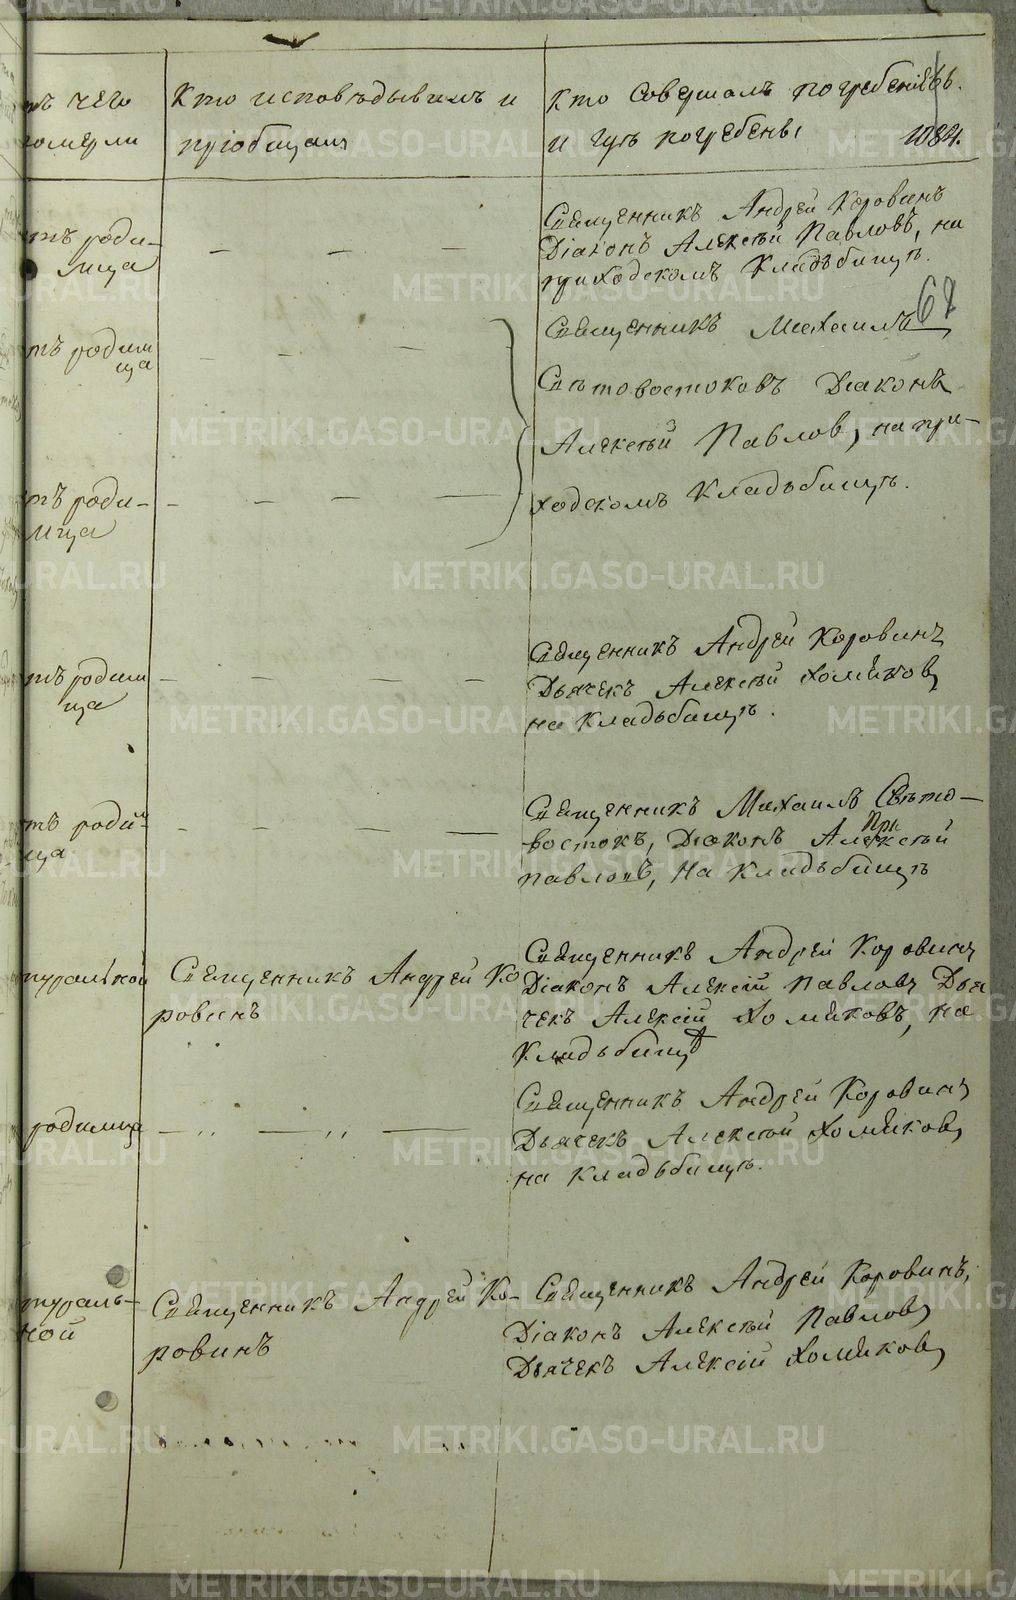 чего
померли
Кто исповѣдывалъ и
пріобщалъ
Кто Совершалъ погребеніе
и гдѣ погребены
68
тъ роди-
мца
Священникъ Андрей Коровинъ
Діаконъ Алексѣй Павловъ, на
приходскомъ Кладъбищѣ.
тъ родим
ца
тъ роди-
мца
Священникъ Михаилъ
Свѣтовостоковъ Діаконъ
Алексѣй Павловъ, на при-
ходскомъ Кладъбищѣ.
тъ родим
ца
Священникъ Андрей Коровинъ
Дьячекъ Алексѣй Хомяковъ
на Кладъбищѣ.
тъ родим
ца
Священникъ Михаилъ Свѣто-
востокъ, Діаконъ Алексѣй
павловъ, На Кладъбищѣ
туральной
Священникъ Андрей Ко
ровинъ
Священникъ Андрей Коровинъ
Діаконъ Алексій Павловъ Дья
чекъ Алексій Хомяковъ, на
Кладьбищѣ
родимца
Священникъ Андрей Коровинъ
Дьячекъ Алексѣй Хомяковъ
на Кладьбищѣ.
тураль-
ной
Священникъ Андрей Ко-
ровинъ
Священникъ Андрей Коровинъ,
Діаконъ Алексѣй Павловъ
Дьячекъ Алексій Хомяковъ
METRIKI.GASO-URAL.RU